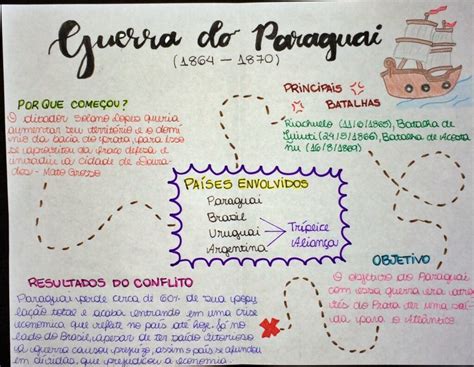 Guerra do Paraguai
(1864 - 1870)
PRINCIPAIS
BATALHAS
Riachuelo (11/6/1865), Batalha de
Tuiuti (24/5/1866), Batalha de Acosta
Ñu (16/8/1869)
POR QUE COMEÇOU?
O ditador Solano Lopes queria
aumentar seu território e o domí
nio da bacia do prata, para isso
se aproveitou da fraca defesa e
invadiu a cidade de Doura-
dos - Mato Grosso
PAÍSES ENVOLVIDOS
Paraguai
Brasil
Uruguai
Argentina
Tríplice
Aliança
OBJETIVO
O objetivo do Paraguai
com essa guerra era atra
vés do Prata ter uma saí
da para o Atlântico.
RESULTADOS DO CONFLITO
Paraguai perde cerca de 60% de sua popu
lação total e acaba entrando em uma crise
econômica que reflete no país até hoje. Já no
lado do Brasil, apesar de ter saído vitorioso
a guerra causou prejuízo, assim o país se afundou
em dívidas, que prejudicou a economia.